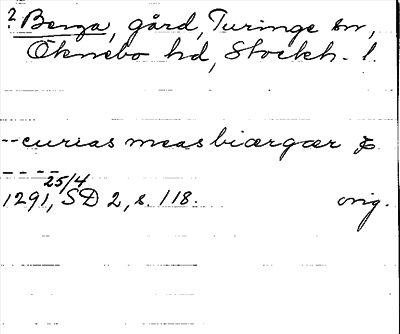 ? Berga, gård, Turinge sn,
Öknebo hd, Stockh. l.
--curias meas biærgær
----
25/4
1291, SD 2, s. 118. orig.